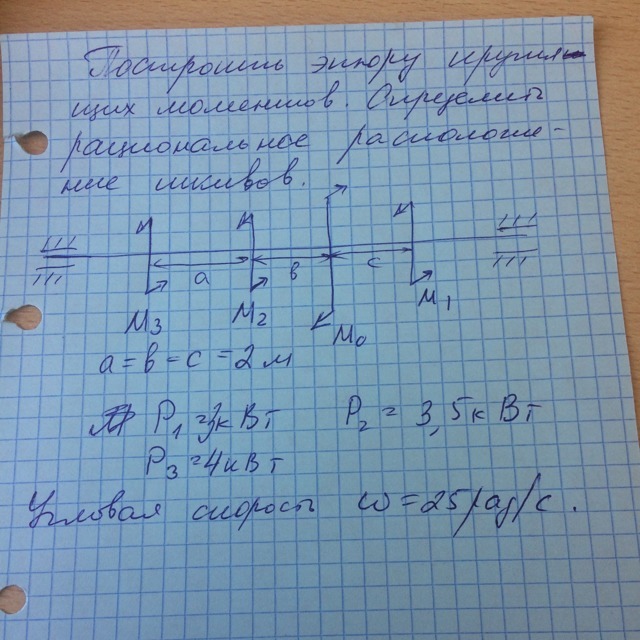 Построить эпюру крутя-
щих моментов. Определить
рациональное расположе-
ние шкивов.
a в c
M3 M2 M0 M1
a = в = c = 2 м
P1 = 3кВт P2 = 3,5кВт
P3 = 4кВт
Угловая скорость ω = 25рад/с.